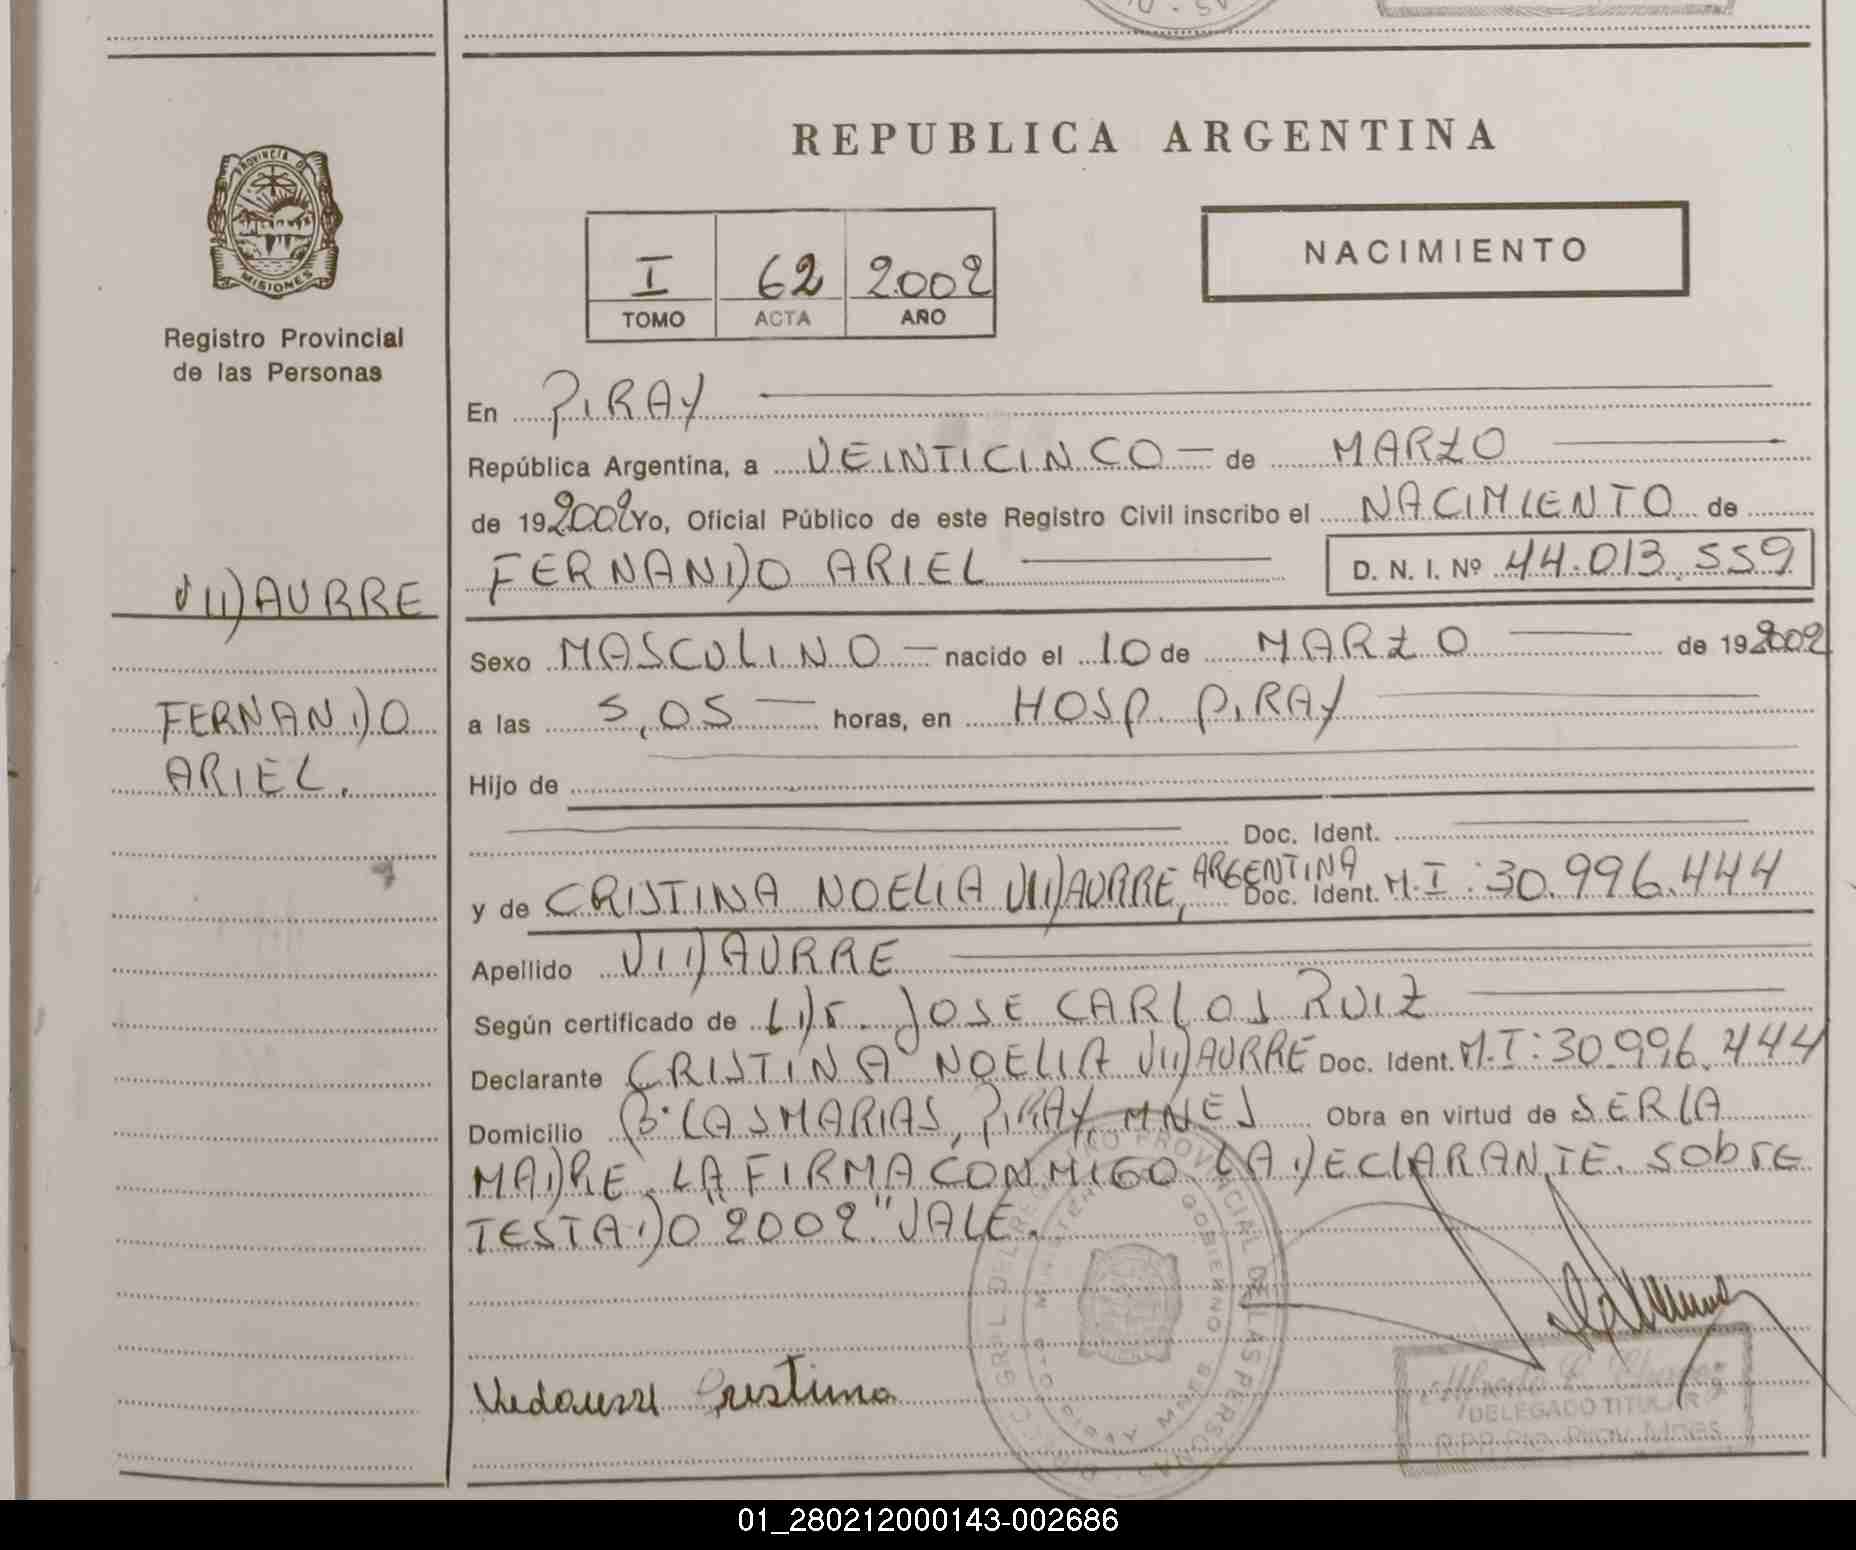 REPUBLICA ARGENTINA
PROVINCIA D
MISIONES
Registro Provincial
de las Personas
I 62 2002
TOMO ACTA AÑO
NACIMIENTO
En PIRAY
República Argentina, a VEINTICINCO de MARZO
de 19 2002 Yo, Oficial Público de este Registro Civil inscribo el NACIMIENTO de
FERNANDO ARIEL D. N. I. Nº 44.013.559
VIDAURRE
Sexo MASCULINO nacido el 10 de MARZO de 19 2002
FERNANDO
ARIEL.
a las 5,05 horas, en HOSP. PIRAY
Hijo de
Doc. Ident.
y de CRISTINA NOELIA VIDAURRE, ARGENTINA Doc. Ident. M.I: 30.996.444
Apellido VIDAURRE
Según certificado de JOSE CARLOS RUIZ
Declarante CRISTINA NOELIA VIDAURRE Doc. Ident. M.I: 30.996.444
Domicilio Bº LAS MARIAS, PIRAY, MNES Obra en virtud de SER LA
MADRE. LA FIRMA CONMIGO LA DECLARANTE. SObrE
TESTADO "2002" VALE.
Cristina
DELEGADO TITULAR
01_280212000143-002686